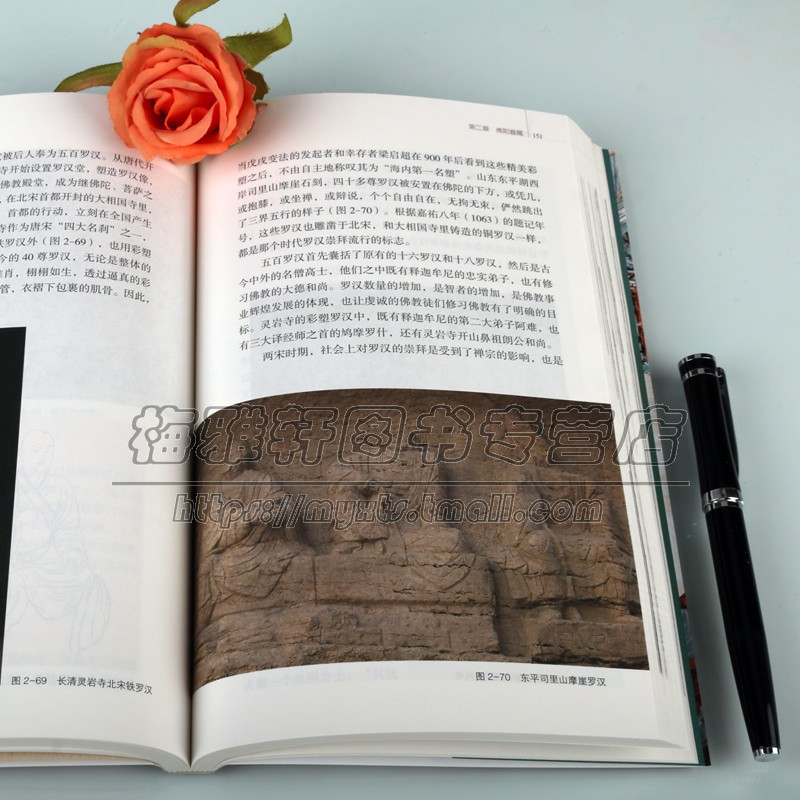 被后人奉为五百罗汉。从唐代开
寺开始设置罗汉堂,塑造罗汉像,
佛教殿堂,成为继佛陀、菩萨之
,在北宋首都开封的大相国寺里,
首都的行动,立刻在全国产生
寺作为唐宋“四大名刹”之一,
铁罗汉外(图2-69),也用彩塑
今的40尊罗汉,无论是整体的
惟肖,栩栩如生,透过逼真的彩
管,衣褶下包裹的肌骨。因此,
图2-69 长清灵岩寺北宋铁罗汉
第二章 佛陀眷属 151
当戊戌变法的发起者和幸存者梁启超在900年后看到这些精美彩
塑之后,不由自主地称叹其为“海内第一名塑”。山东东平湖西
岸司里山摩崖石刻,四十多尊罗汉被安置在佛陀的下方,或凭几,
或抱膝,或坐禅,或辩说,个个自由自在,无拘无束,俨然跳出
了三界五行的样子(图2-70)。根据嘉祐八年(1063)的题记年
号,这些罗汉也雕凿于北宋,和大相国寺里铸造的铜罗汉一样,
都是那个时代罗汉崇拜流行的标志。
五百罗汉首先囊括了原有的十六罗汉和十八罗汉,然后是古
今中外的名僧高士,他们之中既有释迦牟尼的忠实弟子,也有修
习佛教的大德和尚。罗汉数量的增加,是智者的增加,是佛教事
业辉煌发展的体现,也让虔诚的佛教徒们修习佛教有了明确的目
标。灵岩寺的彩塑罗汉中,既有释迦牟尼的第二大弟子阿难,也
有三大译经师之首的鸠摩罗什,还有灵岩寺开山鼻祖朗公和尚。
两宋时期,社会上对罗汉的崇拜是受到了禅宗的影响,也是
梅雅轩图书专营店
https://myxts.tmall.com
图2-70 东平司里山摩崖罗汉